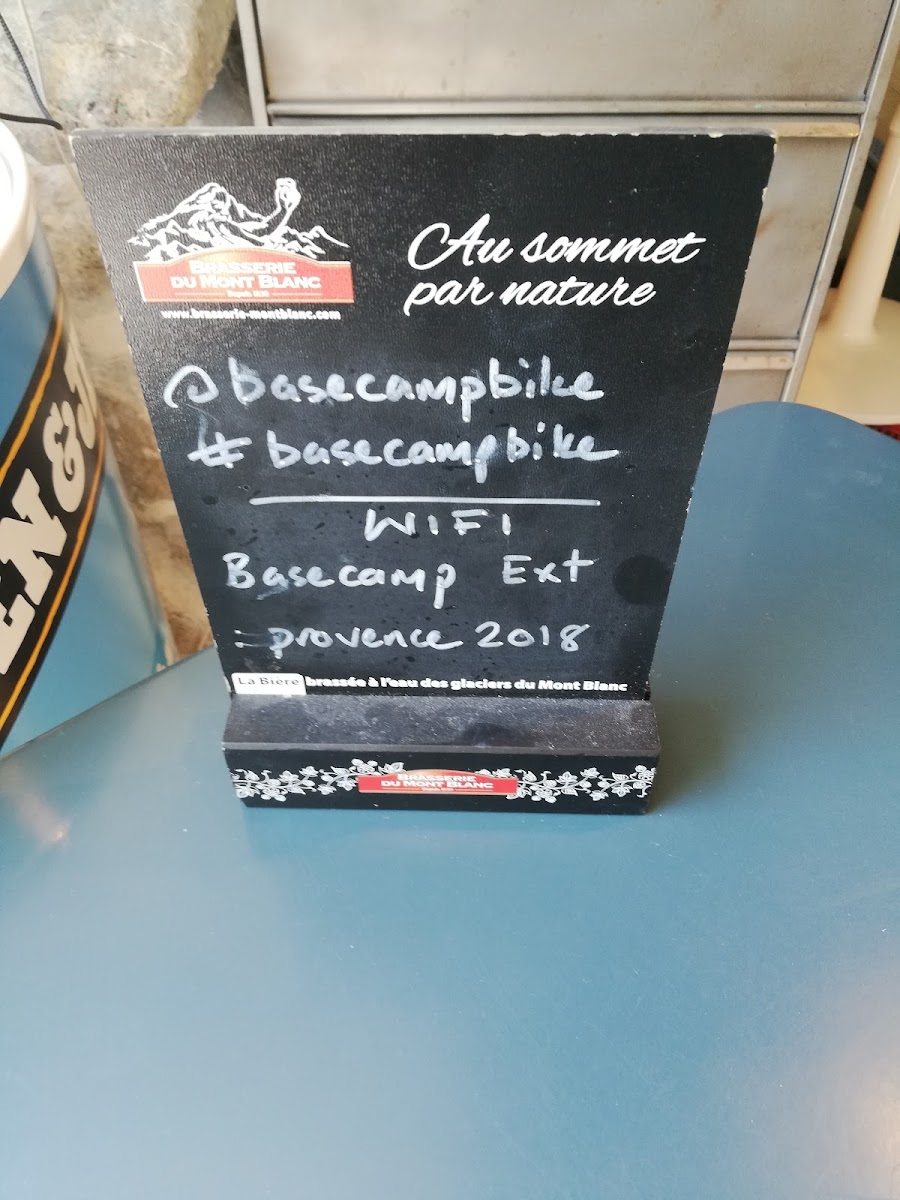 BRASSERIE
DU MONT BLANC
Depuis 1821
www.brasserie-montblanc.com
Au sommet
par nature
@basecampbike
# basecampbike
WIFI
Basecamp Ext
: provence 2018
La Bière brassée à l'eau des glaciers du Mont Blanc
BRASSERIE
DU MONT BLANC
EN & J